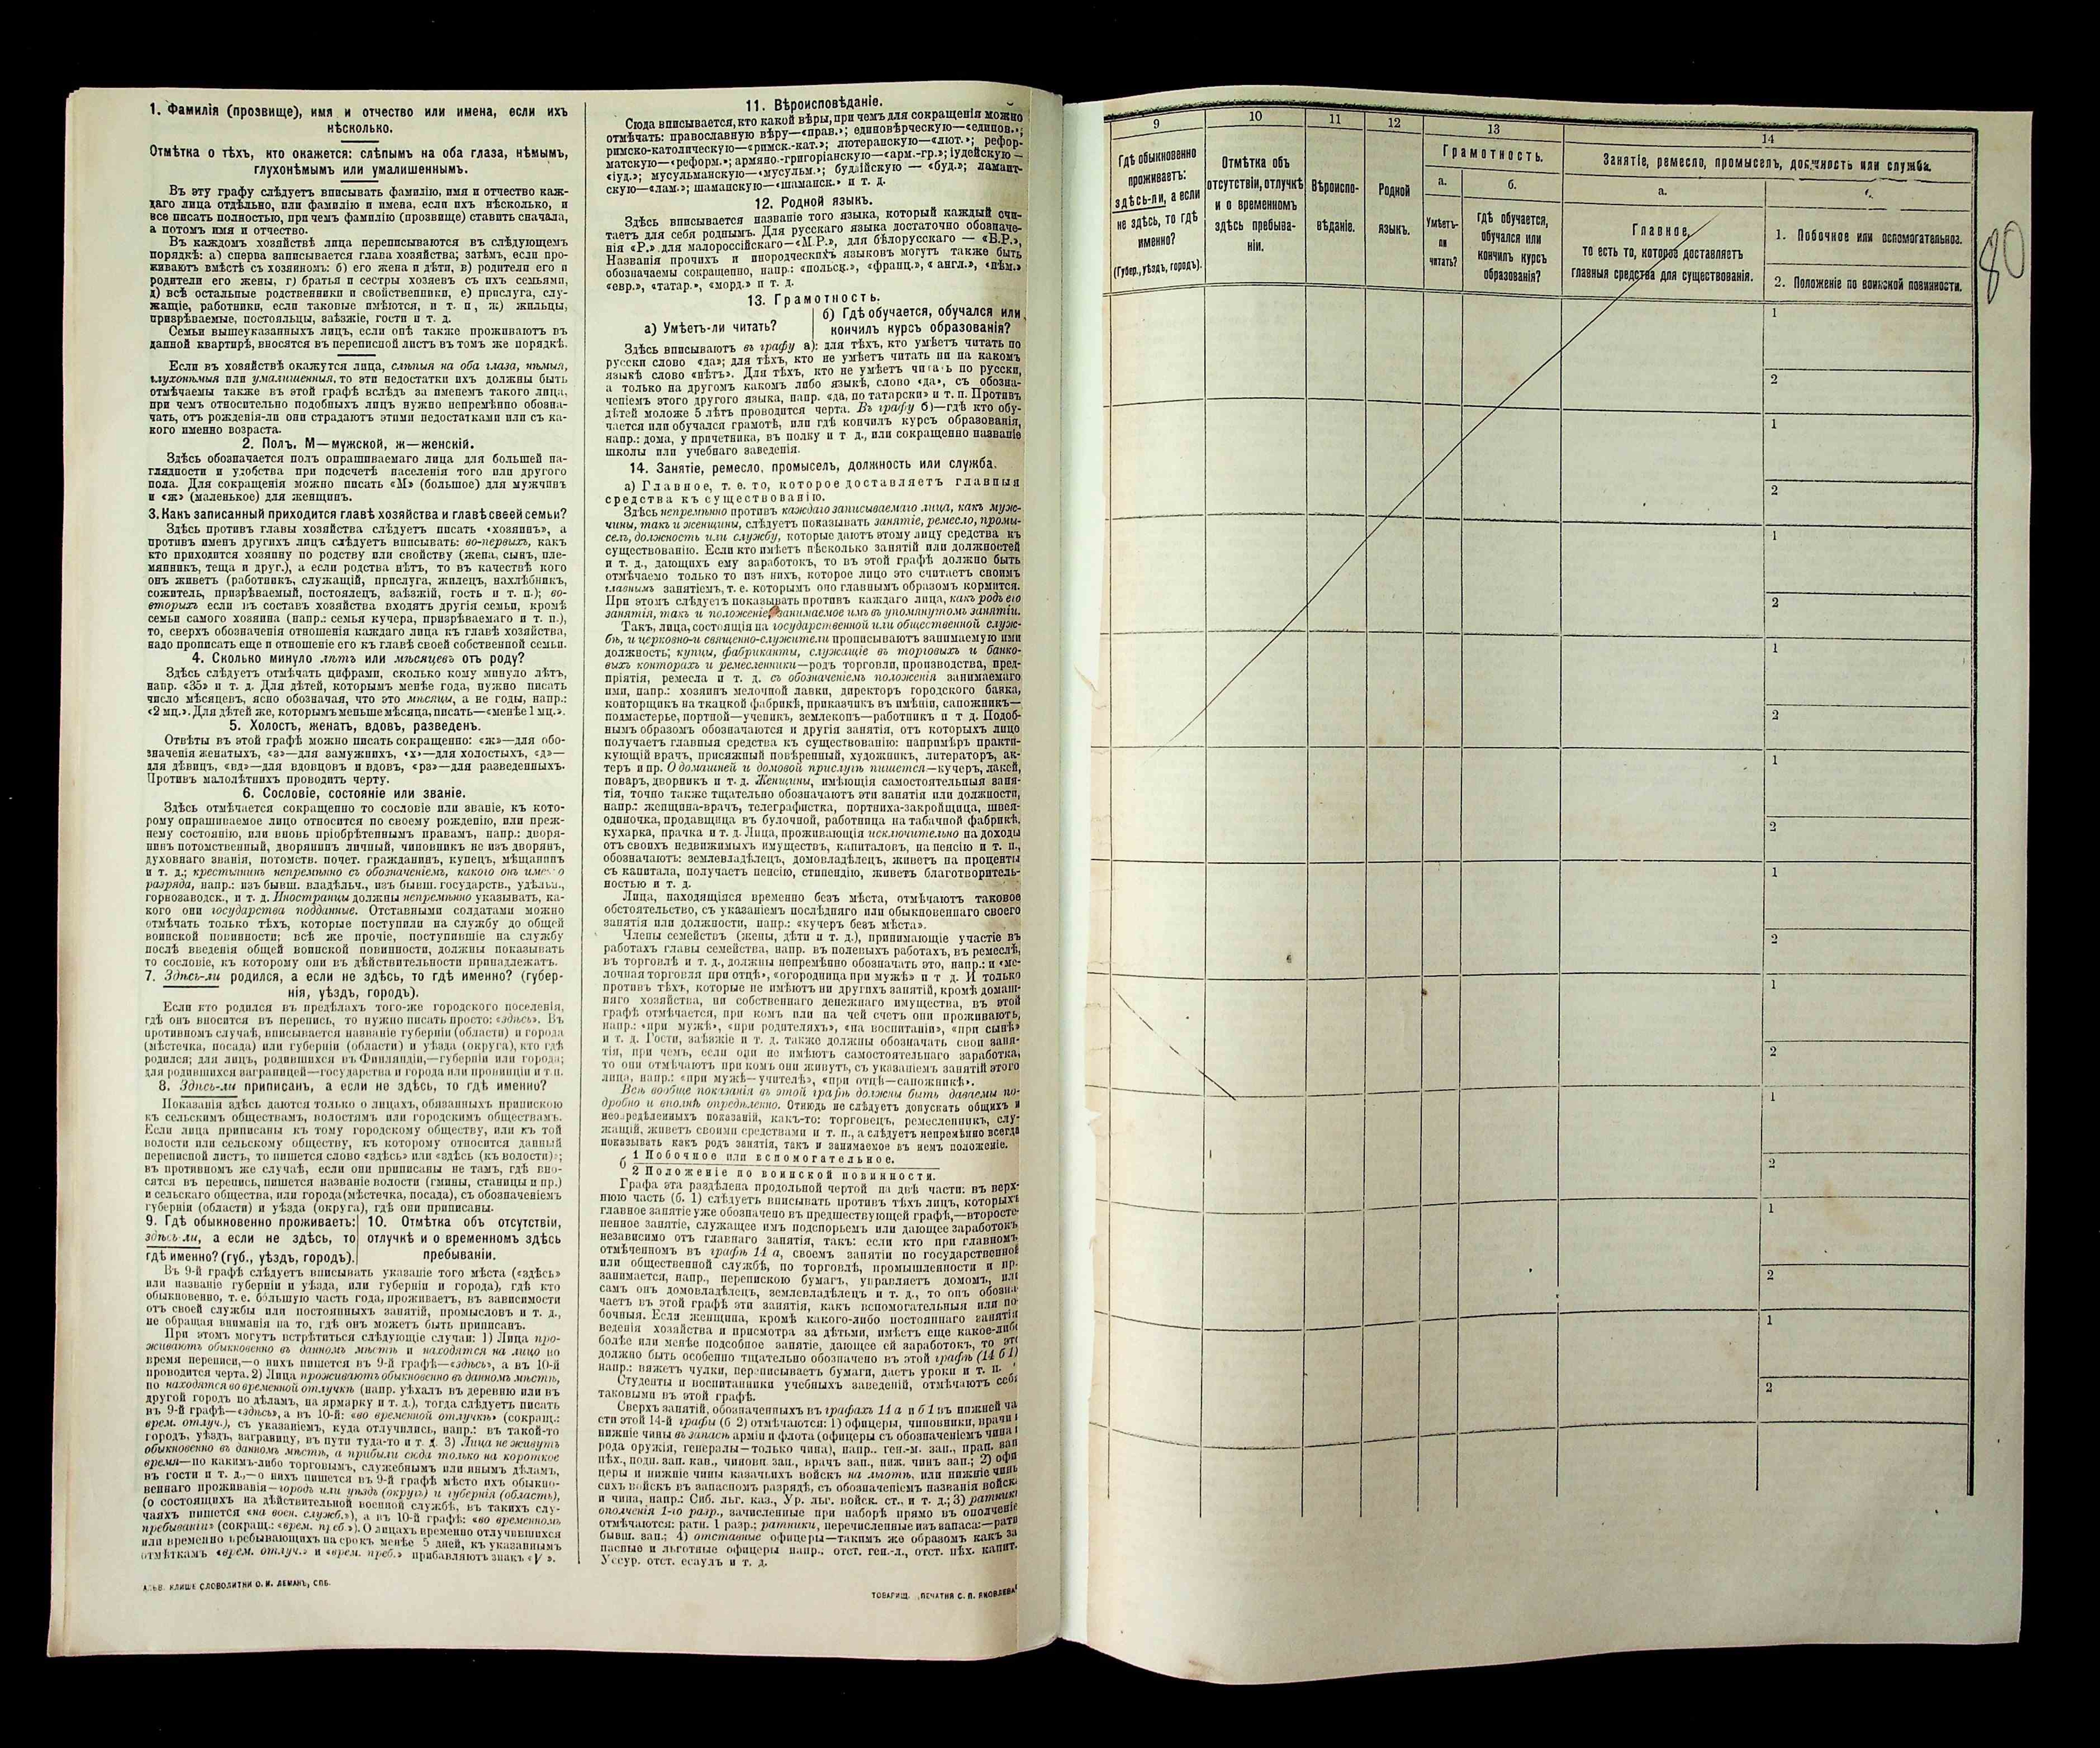 1. Фамилія (прозвище), имя и отчество или имена, если ихъ
нѣсколько.
Отмѣтка о тѣхъ, кто окажется: слѣпымъ на оба глаза, нѣмымъ,
глухонѣмымъ или умалишеннымъ.
Въ эту графу слѣдуетъ вписывать фамилію, имя и отчество каж-
даго лица отдѣльно, или фамилію и имена, если ихъ нѣсколько, и
все писать полностью, при чемъ фамилію (прозвище) ставить сначала,
а потомъ имя и отчество.
Въ каждомъ хозяйствѣ лица переписываются въ слѣдующемъ
порядкѣ: а) сперва записывается глава хозяйства; затѣмъ, если про-
живаютъ вмѣстѣ съ хозяиномъ: б) его жена и дѣти, в) родители его и
родители его жены, г) братья и сестры хозяевъ съ ихъ семьями,
д) всѣ остальные родственники и свойственники, е) прислуга, слу-
жащіе, работники, если таковые имѣются, и т. п., ж) жильцы,
призрѣваемые, постояльцы, заѣзжіе, гости и т. д.
Семьи вышеуказанныхъ лицъ, если онѣ также проживаютъ въ
данной квартирѣ, вносятся въ переписной листъ въ томъ же порядкѣ.
Если въ хозяйствѣ окажутся лица, слѣпыя на оба глаза, нѣмыя,
глухонѣмыя или умалишенныя, то эти недостатки ихъ должны быть
отмѣчаемы также въ этой графѣ вслѣдъ за именемъ такого лица,
при чемъ относительно подобныхъ лицъ нужно непремѣнно обозна-
чать, отъ рожденія-ли они страдаютъ этими недостатками или съ ка-
кого именно возраста.
2. Полъ. М—мужской, ж—женскій.
Здѣсь обозначается полъ опрашиваемаго лица для большей на-
глядности и удобства при подсчетѣ населенія того или другого
пола. Для сокращенія можно писать «М» (большое) для мужчинъ
и «ж» (маленькое) для женщинъ.
3. Какъ записанный приходится главѣ хозяйства и главѣ своей семьи?
Здѣсь противъ главы хозяйства слѣдуетъ писать «хозяинъ», а
противъ именъ другихъ лицъ слѣдуетъ вписывать: во-первыхъ, какъ
кто приходится хозяину по родству или свойству (жена, сынъ, пле-
мянникъ, теща и друг.), а если родства нѣтъ, то въ качествѣ кого
онъ живетъ (работникъ, служащій, прислуга, жилецъ, нахлѣбникъ,
сожитель, призрѣваемый, постоялецъ, заѣзжій, гость и т. п.); во-
вторыхъ если въ составъ хозяйства входятъ другія семьи, кромѣ
семьи самого хозяина (напр.: семья кучера, призрѣваемаго и т. п.),
то, сверхъ обозначенія отношенія каждаго лица къ главѣ хозяйства,
надо прописать еще и отношеніе его къ главѣ своей собственной семьи.
4. Сколько минуло лѣтъ или мѣсяцевъ отъ роду?
Здѣсь слѣдуетъ отмѣчать цифрами, сколько кому минуло лѣтъ,
напр. «35» и т. д. Для дѣтей, которымъ менѣе года, нужно писать
число мѣсяцевъ, ясно обозначая, что это мѣсяцы, а не годы, напр.:
«2 мц.». Для дѣтей же, которымъ меньше мѣсяца, писать—«менѣе 1 мц.».
5. Холостъ, женатъ, вдовъ, разведенъ.
Отвѣты въ этой графѣ можно писать сокращенно: «ж»—для обо-
значенія женатыхъ, «з»—для замужнихъ, «х»—для холостыхъ, «д»—
для дѣвицъ, «вд»—для вдовцовъ и вдовъ, «рз»—для разведенныхъ.
Противъ малолѣтнихъ проводить черту.
6. Сословіе, состояніе или званіе.
Здѣсь отмѣчается сокращенно то сословіе или званіе, къ кото-
рому опрашиваемое лицо относится по своему рожденію, или преж-
нему состоянію, или вновь пріобрѣтеннымъ правамъ, напр.: дворя-
нинъ потомственный, дворянинъ личный, чиновникъ не изъ дворянъ,
духовнаго званія, потомств. почет. гражданинъ, купецъ, мѣщанинъ
и т. д.; крестьянинъ непремѣнно съ обозначеніемъ, какого онъ имен о
разряда, напр.: изъ бывш. владѣльч., изъ бывш. государств., удѣльн.,
горнозаводск., и т. д. Иностранцы должны непремѣнно указывать, ка-
кого они государства подданные. Отставными солдатами можно
отмѣчать только тѣхъ, которые поступили на службу до общей
воинской повинности; всѣ же прочіе, поступившіе на службу
послѣ введенія общей воинской повинности, должны показывать
то сословіе, къ которому они въ дѣйствительности принадлежатъ.
7. Здѣсь-ли родился, а если не здѣсь, то гдѣ именно? (губер-
нія, уѣздъ, городъ).
Если кто родился въ предѣлахъ того-же городского поселенія,
гдѣ онъ вносится въ перепись, то нужно писать просто: «здѣсь». Въ
противномъ случаѣ, вписывается названіе губерніи (области) и города
(мѣстечка, посада) или губерніи (области) и уѣзда (округа), кто гдѣ
родился; для лицъ, родившихся въ Финляндіи,—губерніи или города;
для родившихся заграницей—государства и города или провинціи и т. п.
8. Здѣсь-ли приписанъ, а если не здѣсь, то гдѣ именно?
Показанія здѣсь даются только о лицахъ, обязанныхъ припискою
къ сельскимъ обществамъ, волостямъ или городскимъ обществамъ.
Если лица приписаны къ тому городскому обществу, или къ той
волости или сельскому обществу, къ которому относится данный
переписной листъ, то пишется слово «здѣсь» или «здѣсь (къ волости)»;
въ противномъ же случаѣ, если они приписаны не тамъ, гдѣ вно-
сятся въ перепись, пишется названіе волости (гмины, станицы и пр.)
и сельскаго общества, или города (мѣстечка, посада), съ обозначеніемъ
губерніи (области) и уѣзда (округа), гдѣ они приписаны.
9. Гдѣ обыкновенно проживаетъ:
здѣсь-ли, а если не здѣсь, то
гдѣ именно? (губ., уѣздъ, городъ).
10. Отмѣтка объ отсутствіи,
отлучкѣ и о временномъ здѣсь
пребываніи.
Въ 9-й графѣ слѣдуетъ вписывать указаніе того мѣста («здѣсь»
или названіе губерніи и уѣзда, или губерніи и города), гдѣ кто
обыкновенно, т. е. бо́льшую часть года, проживаетъ, въ зависимости
отъ своей службы или постоянныхъ занятій, промысловъ и т. д.,
не обращая вниманія на то, гдѣ онъ можетъ быть приписанъ.
При этомъ могутъ встрѣтиться слѣдующіе случаи: 1) Лица про-
живаютъ обыкновенно въ данномъ мѣстѣ и находятся на лицо во
время переписи,—о нихъ пишется въ 9-й графѣ—«здѣсь», а въ 10-й
проводится черта. 2) Лица проживаютъ обыкновенно въ данномъ мѣстѣ,
но находятся во временной отлучкѣ (напр. уѣхалъ въ деревню или въ
другой городъ по дѣламъ, на ярмарку и т. д.), тогда слѣдуетъ писать
въ 9-й графѣ—«здѣсь», а въ 10-й: «во временной отлучкѣ» (сокращ.:
врем. отлуч.), съ указаніемъ, куда отлучились, напр.: въ такой-то
городъ, уѣздъ, заграницу, въ пути туда-то и т. д. 3) Лица не живутъ
обыкновенно въ данномъ мѣстѣ, а прибыли сюда только на короткое
время—по какимъ-либо торговымъ, служебнымъ или инымъ дѣламъ,
въ гости и т. д.,—о нихъ пишется въ 9-й графѣ мѣсто ихъ обыкно-
веннаго проживанія—городъ или уѣздъ (округъ) и губернія (область),
(о состоящихъ на дѣйствительной военной службѣ, въ такихъ слу-
чаяхъ пишется «на воен. служб.»), а въ 10-й графѣ: «во временномъ
пребываніи» (сокращ.: «врем. преб.»). О лицахъ временно отлучившихся
или временно пребывающихъ на срокъ менѣе 5 дней, къ указаннымъ
отмѣткамъ «врем. отлуч.» и «врем. преб.» прибавляютъ знакъ «V».
КЛИШЕ СЛОВОЛИТНИ О. И. ЛЕМАНЪ, СПБ.
11. Вѣроисповѣданіе.
Сюда вписывается, кто какой вѣры, при чемъ для сокращенія можно
отмѣчать: православную вѣру—«прав.»; единовѣрческую—«единов.»;
римско-католическую—«римск.-кат.»; лютеранскую—«лют.»; рефор-
матскую—«реформ.»; армяно-григоріанскую—«арм.-гр.»; іудейскую—
«іуд.»; мусульманскую—«мусульм.»; буддійскую — «буд.»; ламаит-
скую—«лам.»; шаманскую—«шаманск.» и т. д.
12. Родной языкъ.
Здѣсь вписывается названіе того языка, который каждый счи-
таетъ для себя роднымъ. Для русскаго языка достаточно обозначе-
нія «Р.» для малороссійскаго—«М.Р.», для бѣлорусскаго — «Б.Р.»,
Названія прочихъ и инородческихъ языковъ могутъ также быть
обозначаемы сокращенно, напр.: «польск.», «франц.», «англ.», «нѣм.»
«евр.», «татар.», «морд.» и т. д.
13. Грамотность.
а) Умѣетъ-ли читать?
б) Гдѣ обучается, обучался или
кончилъ курсъ образованія?
Здѣсь вписываютъ въ графу а): для тѣхъ, кто умѣетъ читать по
русски слово «да»; для тѣхъ, кто не умѣетъ читать ни на какомъ
языкѣ слово «нѣтъ». Для тѣхъ, кто не умѣетъ читать по русски,
а только на другомъ какомъ либо языкѣ, слово «да», съ обозна-
ченіемъ этого другого языка, напр. «да, по татарски» и т. п. Противъ
дѣтей моложе 5 лѣтъ проводится черта. Въ графу б)—гдѣ кто обу-
чается или обучался грамотѣ, или гдѣ кончилъ курсъ образованія,
напр.: дома, у причетника, въ полку и т д., или сокращенно названіе
школы или учебнаго заведенія.
14. Занятіе, ремесло, промыселъ, должность или служба.
а) Главное, т. е. то, которое доставляетъ главныя
средства къ существованію.
Здѣсь непремѣнно противъ каждаго записываемаго лица, какъ муж-
чины, такъ и женщины, слѣдуетъ показывать занятіе, ремесло, промы-
селъ, должность или службу, которые даютъ этому лицу средства къ
существованію. Если кто имѣетъ нѣсколько занятій или должностей
и т. д., дающихъ ему заработокъ, то въ этой графѣ должно быть
отмѣчаемо только то изъ нихъ, которое лицо это считаетъ своимъ
главнымъ занятіемъ, т. е. которымъ оно главнымъ образомъ кормится.
При этомъ слѣдуетъ показывать противъ каждаго лица, какъ родъ его
занятія, такъ и положеніе, занимаемое имъ въ упомянутомъ занятіи.
Такъ, лица, состоящія на государственной или общественной служ-
бѣ, и церковно-и священно-служители прописываютъ занимаемую ими
должность; купцы, фабриканты, служащіе въ торговыхъ и банко-
выхъ конторахъ и ремесленники—родъ торговли, производства, пред-
пріятія, ремесла и т. д. съ обозначеніемъ положенія занимаемаго
ими, напр.: хозяинъ мелочной лавки, директоръ городского банка,
конторщикъ на ткацкой фабрикѣ, приказчикъ въ имѣніи, сапожникъ—
подмастерье, портной—ученикъ, землекопъ—работникъ и т д. Подоб-
нымъ образомъ обозначаются и другія занятія, отъ которыхъ лицо
получаетъ главныя средства къ существованію: напримѣръ практи-
кующій врачъ, присяжный повѣренный, художникъ, литераторъ, ак-
теръ и пр. О домашней и домовой прислугѣ пишется—кучеръ, лакей,
поваръ, дворникъ и т. д. Женщины, имѣющія самостоятельныя заня-
тія, точно также тщательно обозначаютъ эти занятія или должности,
напр.: женщина-врачъ, телеграфистка, портниха-закройщица, швея-
одиночка, продавщица въ булочной, работница на табачной фабрикѣ,
кухарка, прачка и т. д. Лица, проживающія исключительно на доходы
отъ своихъ недвижимыхъ имуществъ, капиталовъ, на пенсію и т. п.,
обозначаютъ: землевладѣлецъ, домовладѣлецъ, живетъ на проценты
съ капитала, получаетъ пенсію, стипендію, живетъ благотворитель-
ностью и т. д.
Лица, находящіяся временно безъ мѣста, отмѣчаютъ таковое
обстоятельство, съ указаніемъ послѣдняго или обыкновеннаго своего
занятія или должности, напр.: «кучеръ безъ мѣста».
Члены семействъ (жены, дѣти и т. д.), принимающіе участіе въ
работахъ главы семейства, напр. въ полевыхъ работахъ, въ ремеслѣ,
въ торговлѣ и т. д., должны непремѣнно обозначать это, напр.: и «ме-
лочная торговля при отцѣ», «огородница при мужѣ» и т д. И только
противъ тѣхъ, которые не имѣютъ ни другихъ занятій, кромѣ домаш-
няго хозяйства, ни собственнаго денежнаго имущества, въ этой
графѣ отмѣчается, при комъ или на чей счетъ они проживаютъ,
напр.: «при мужѣ», «при родителяхъ», «на воспитаніи», «при сынѣ»
и т. д. Гости, заѣзжіе и т. д. также должны обозначать свои заня-
тія, при чемъ, если они не имѣютъ самостоятельнаго заработка,
то они отмѣчаютъ при комъ они живутъ, съ указаніемъ занятій этого
лица, напр.: «при мужѣ—учителѣ», «при отцѣ—сапожникѣ».
Всѣ вообще показанія въ этой графѣ должны быть даваемы по-
дробно и вполнѣ опредѣленно. Отнюдь не слѣдуетъ допускать общихъ и
неопредѣленныхъ показаній, какъ-то: торговецъ, ремесленникъ, слу-
жащій, живетъ своими средствами и т. п., а слѣдуетъ непремѣнно всегда
показывать какъ родъ занятія, такъ и занимаемое въ немъ положеніе.
б 1 Побочное или вспомогательное.
2 Положеніе по воинской повинности.
Графа эта раздѣлена продольной чертой на двѣ части: въ верх-
нюю часть (б. 1) слѣдуетъ вписывать противъ тѣхъ лицъ, которыхъ
главное занятіе уже обозначено въ предшествующей графѣ,—второсте-
пенное занятіе, служащее имъ подспорьемъ или дающее заработокъ,
независимо отъ главнаго занятія, такъ: если кто при главномъ,
отмѣченномъ въ графѣ 14 а, своемъ занятіи по государственной
или общественной службѣ, по торговлѣ, промышленности и пр.
занимается, напр., перепискою бумагъ, управляетъ домомъ, или
самъ онъ домовладѣлецъ, землевладѣлецъ и т. д., то онъ обозна-
чаетъ въ этой графѣ эти занятія, какъ вспомогательныя или по-
бочныя. Если женщина, кромѣ какого-либо постояннаго занятія
веденія хозяйства и присмотра за дѣтьми, имѣетъ еще какое-либо
болѣе или менѣе подсобное занятіе, дающее ей заработокъ, то это
должно быть особенно тщательно обозначено въ этой графѣ (14 б 1)
напр.: вяжетъ чулки, переписываетъ бумаги, даетъ уроки и т. п.
Студенты и воспитанники учебныхъ заведеній, отмѣчаютъ себя
таковыми въ этой графѣ.
Сверхъ занятій, обозначенныхъ въ графахъ 14 а и б 1 въ нижней ча
сти этой 14-й графы (б 2) отмѣчаются: 1) офицеры, чиновники, врачи и
нижніе чины въ запасѣ арміи и флота (офицеры съ обозначеніемъ чина и
рода оружія, генералы—только чина), напр.. ген.-м. зап., прап. зап
пѣх., подп. зап. кав., чиновн. зап., врачъ зап., ниж. чинъ зап.; 2) офи
церы и нижніе чины казачьихъ войскъ на льготѣ, или нижніе чины
сихъ войскъ въ запасномъ разрядѣ, съ обозначеніемъ названія войска
и чина, напр.: Сиб. льг. каз., Ур. льг. войск. ст.. и т. д.; 3) ратники
ополченія 1-го разр., зачисленные при наборѣ прямо въ ополченіе
отмѣчаются: ратн. 1 разр.; ратники, перечисленные изъ запаса:—ратн
бывш. зап.; 4) отставные офицеры—такимъ же образомъ какъ за
пасные и льготные офицеры напр.. отст. ген.-л., отст. пѣх. капит.
Уссур. отст. есаулъ и т. д.
ТОВАРИЩ. „ПЕЧАТНЯ С. П. ЯКОВЛЕВА“
80
9
10
11
12
13
14
Гдѣ обыкновенно
проживаетъ:
здѣсь-ли, а если
не здѣсь, то гдѣ
именно?
(Губер., уѣздъ, городъ).
Отмѣтка объ
отсутствіи, отлучкѣ
и о временномъ
здѣсь пребыва-
ніи.
Вѣроиспо-
вѣданіе.
Родной
языкъ.
Грамотность.
а.
Умѣетъ-
ли
читать?
б.
гдѣ обучается,
обучался или
кончилъ курсъ
образованія?
Занятіе, ремесло, промыселъ, должность или служба.
а.
Главное,
то есть то, которое доставляетъ
главныя средства для существованія.
1. Побочное или вспомогательное.
2. Положеніе по воинской повинности.
1
2
1
2
1
2
1
2
1
2
1
2
1
2
1
2
1
2
1
2